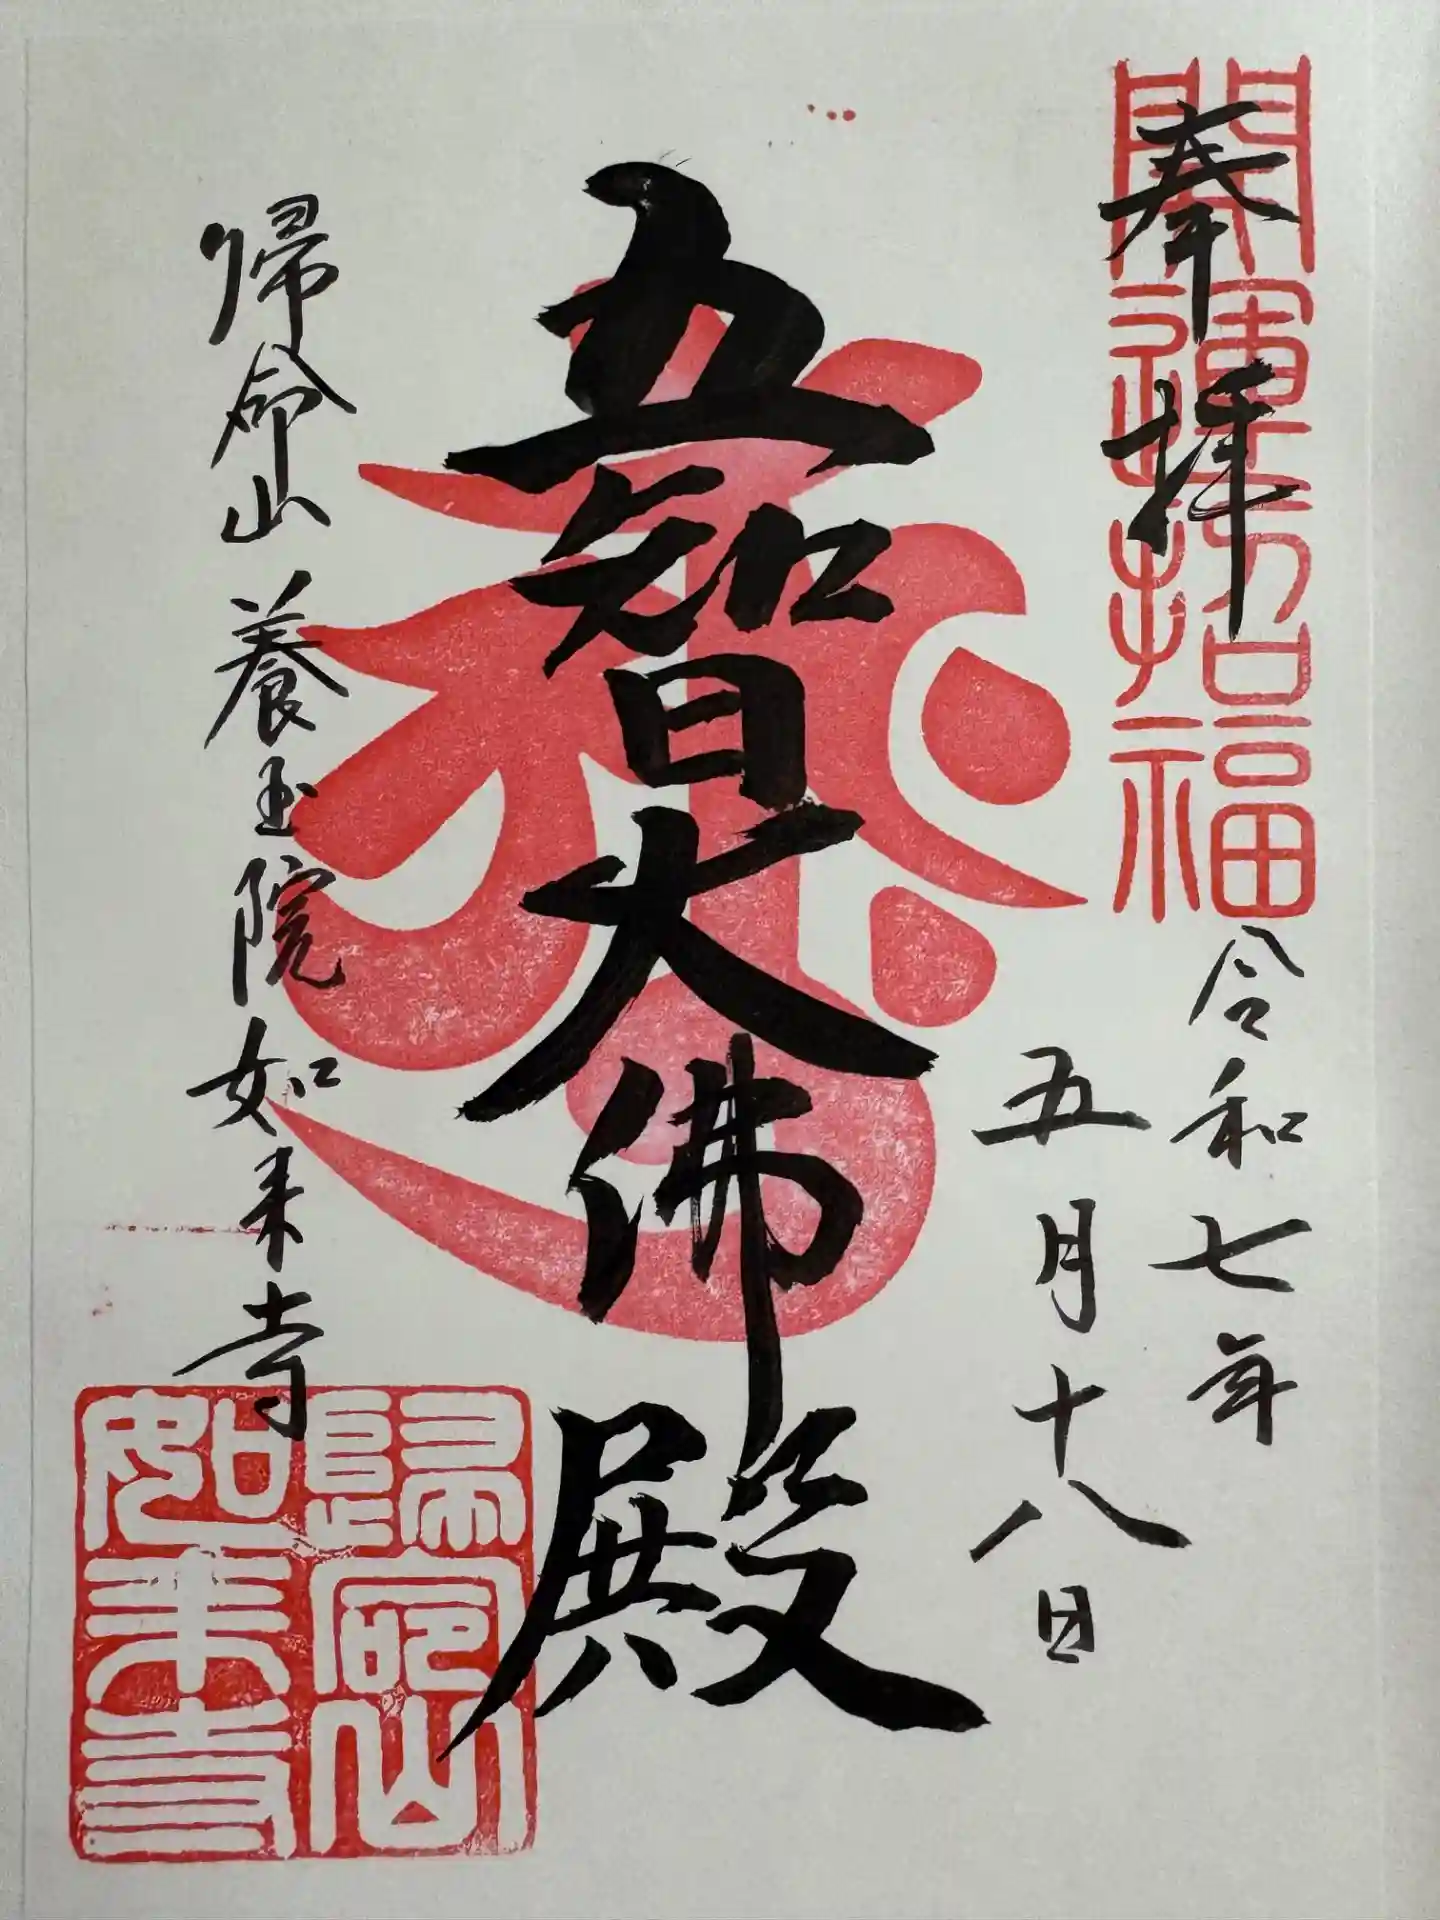 開運招福
奉拝
令和七年
五月十八日
五智大佛殿
帰命山養玉院如来寺
歸命山
如来寺